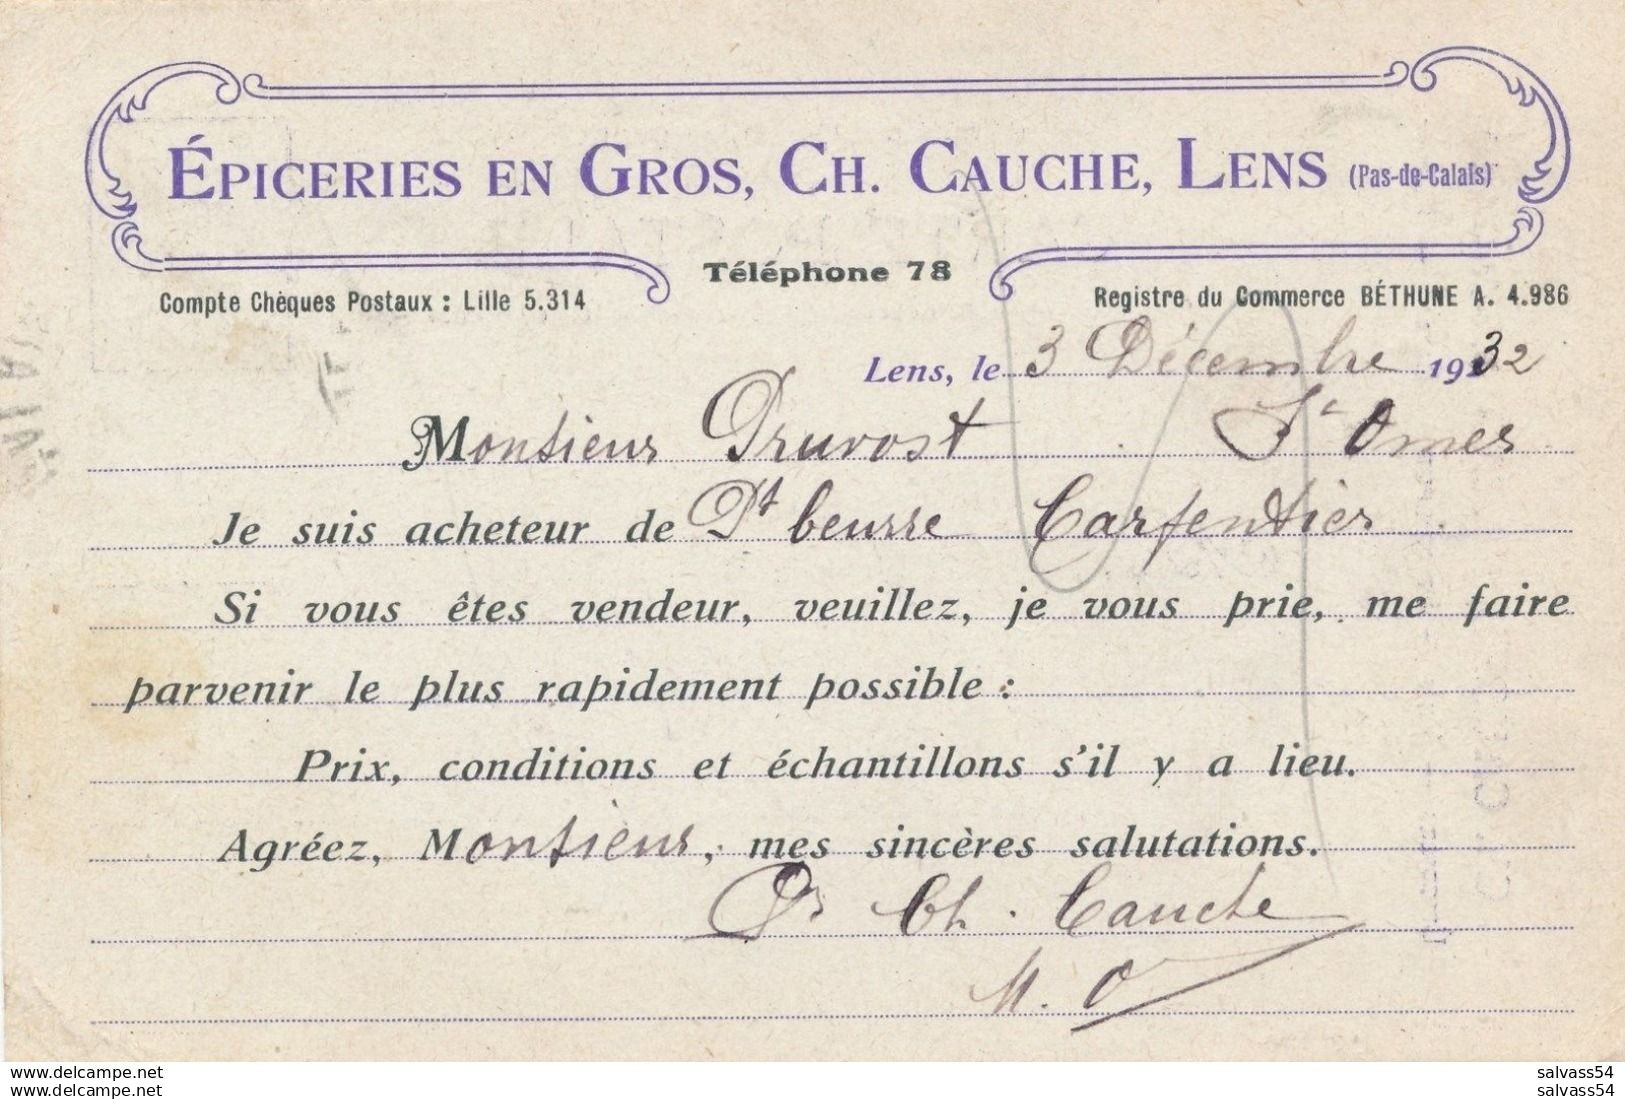 ÉPICERIES EN GROS, CH. CAUCHE, LENS (Pas-de-Calais)
Téléphone 78
Compte Chèques Postaux : Lille 5.314
Registre du Commerce BÉTHUNE A. 4.986
Lens, le 3 Décembre 1932
Monsieur Pruvost St Omer
Je suis acheteur de Pt beurre Carpentier
Si vous êtes vendeur, veuillez, je vous prie, me faire
parvenir le plus rapidement possible :
Prix, conditions et échantillons s'il y a lieu.
Agréez, Monsieur, mes sincères salutations.
Pr Ch. Cauche
M. O
salvass54
salvass54
salvass54
salvass54